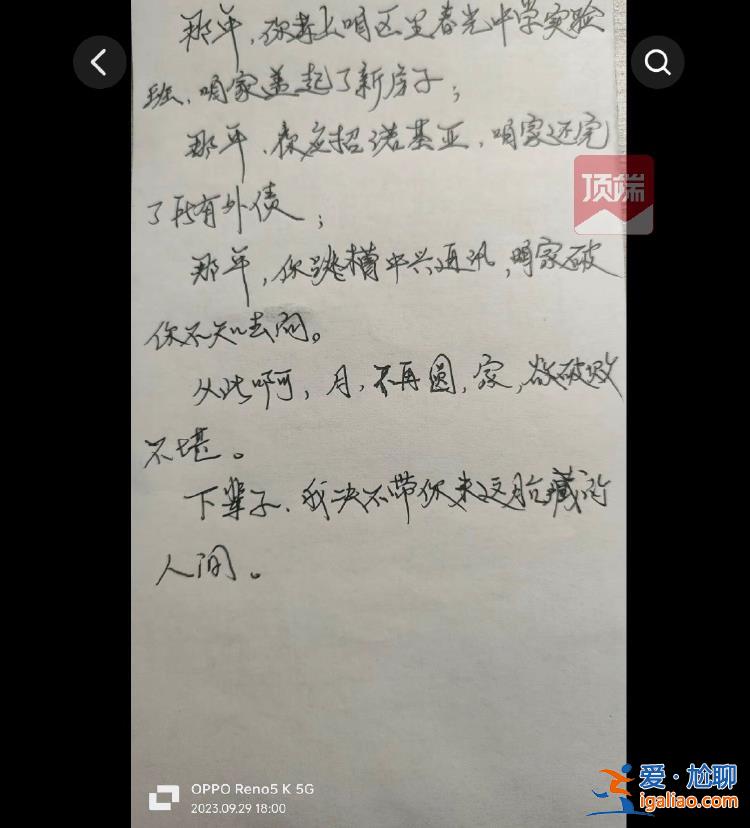 那年，你考上咱区里春光中学实验
班，咱家盖起了新房子；
那年，你应招诺基亚，咱家还完
顶端
了所有外债；
那年，你跳槽中兴通讯，咱家破
你不知去向。
从此啊，月，不再圆，家，破败
不堪。
下辈子，我决不带你来这的
人间。
OPPO Reno5 K 5G
2023.09.29 18:00
爱·尬聊
igaliao.com